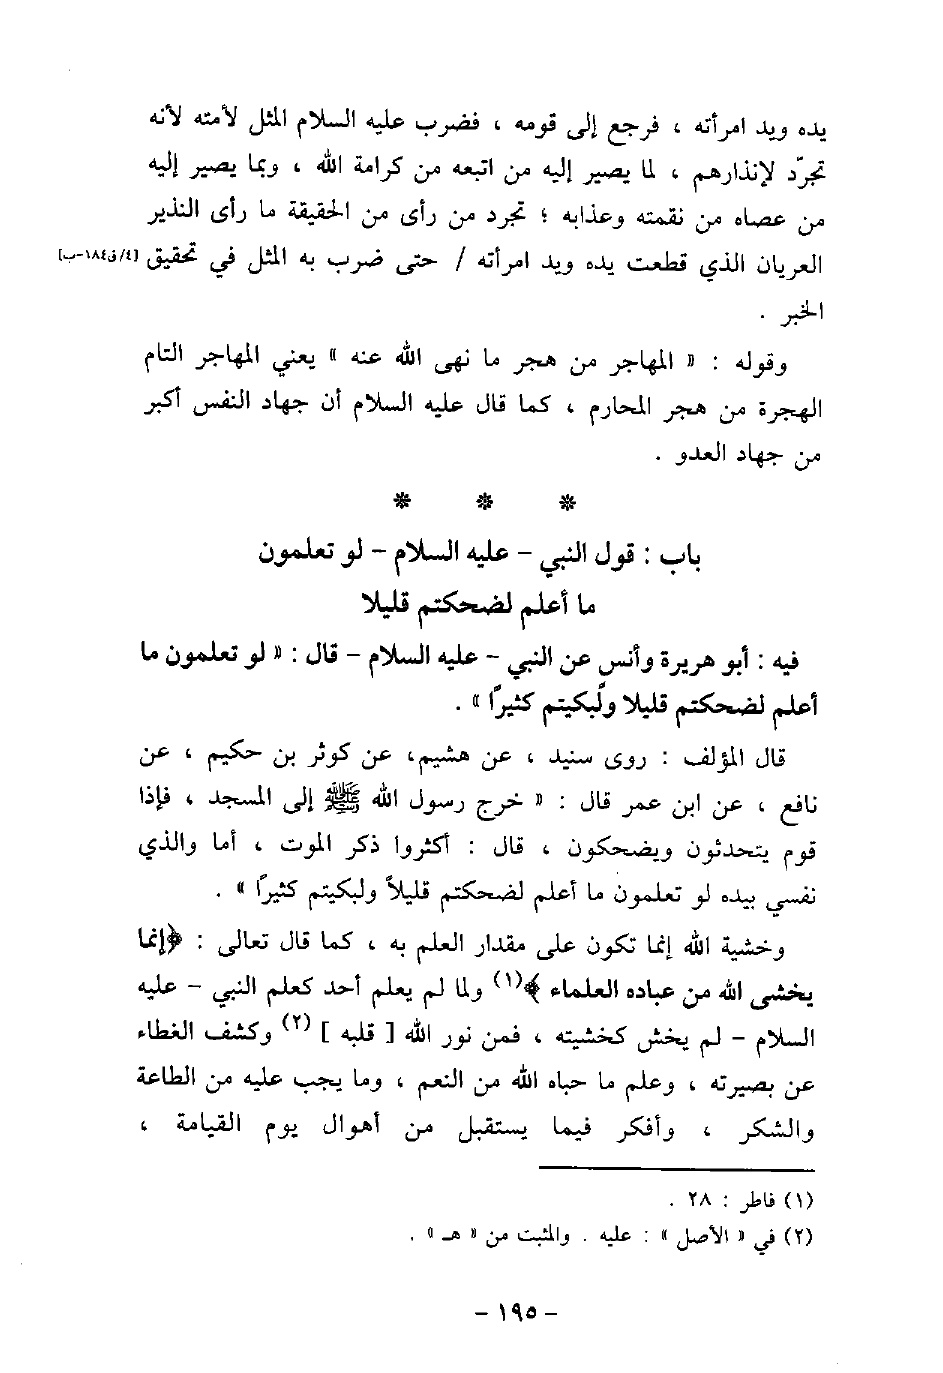 يده ويد امرأته ، فرجع إلى قومه ، فضرب عليه السلام المثل لأمته لأنه
تجرّد لإنذارهم ، لما يصير إليه من اتبعه من كرامة الله ، وبما يصير إليه
من عصاه من نقمته وعذابه ؛ تجرد من رأى من الحقيقة ما رأى النذير
العريان الذي قطعت يده ويد امرأته / حتى ضرب به المثل في تحقيق [٤/ق١٨٤-ب]
الخبر .
وقوله : « المهاجر من هجر ما نهى الله عنه » يعني المهاجر التام
الهجرة من هجر المحارم ، كما قال عليه السلام أن جهاد النفس أكبر
من جهاد العدو .
* * *
باب : قول النبي - عليه السلام - لو تعلمون
ما أعلم لضحكتم قليلا
فيه : أبو هريرة وأنس عن النبي - عليه السلام - قال : « لو تعلمون ما
أعلم لضحكتم قليلا ولبكيتم كثيرًا » .
قال المؤلف : روى سنيد ، عن هشيم، عن كوثر بن حكيم ، عن
نافع ، عن ابن عمر قال : « خرج رسول الله ﷺ إلى المسجد ، فإذا
قوم يتحدثون ويضحكون ، قال : أكثروا ذكر الموت ، أما والذي
نفسي بيده لو تعلمون ما أعلم لضحكتم قليلاً ولبكيتم كثيرًا » .
وخشية الله إنما تكون على مقدار العلم به ، كما قال تعالى : ﴿إنما
يخشى الله من عباده العلماء ﴾(١) ولما لم يعلم أحد كعلم النبي - عليه
السلام - لم يخش كخشيته ، فمن نور الله [ قلبه ] (٢) وكشف الغطاء
عن بصيرته ، وعلم ما حباه الله من النعم ، وما يجب عليه من الطاعة
والشكر ، وأفكر فيما يستقبل من أهوال يوم القيامة ،
(١) فاطر : ٢٨ .
(٢) في « الأصل » : عليه . والمثبت من « هـ » .
- ١٩٥ -